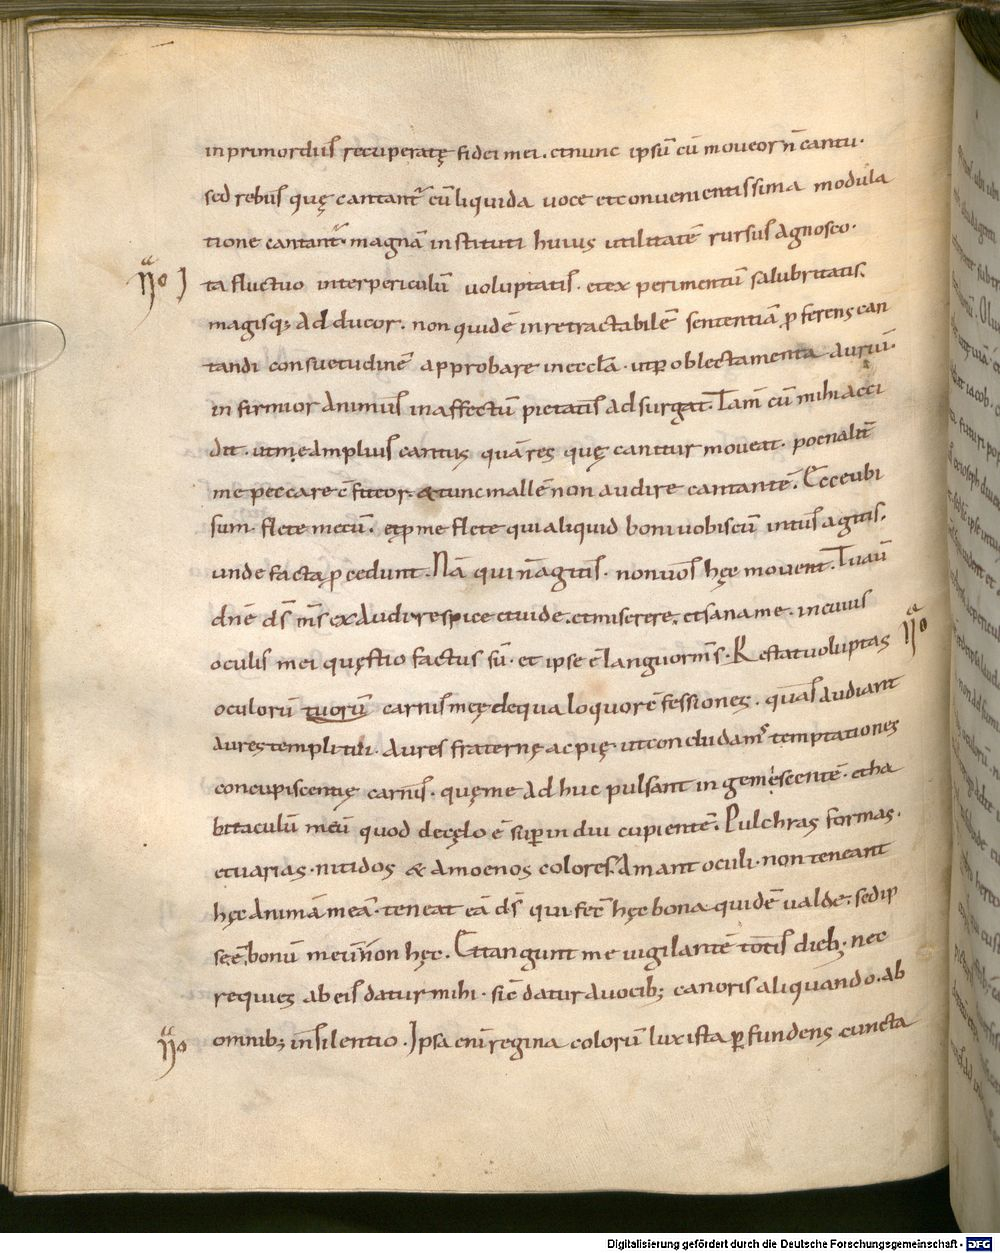 inprimordiis recuperatę fidei mei. etnunc ipsū cū moveor n̄ cantu.
sed rebus quę cantant᷑ cū liquida voce etconvenientissima modula
tione cantant᷑. magnā instituti huius utilitatē rursus agnosco.
Ita fluctuo interpericulū voluptatis. etex perimentū salubritatis.
magisq; adducor. non quidē inretractabilē sententiā ꝓferens can
tandi consuetudinē approbare inęccla. utꝑ oblectamenta auriū.
infirmior animus inaffectū pietatis adsurgat. Tam̄ cū mihi acci
dit. utme amplius cantus quā res quę canitur moveat. poenalit̄
me peccare c̄fiteor. & tunc mallē non audire cantantē. Ecce ubi
sum. flete mecū. etꝓ me flete qui aliquid boni vobiscū intus agitis.
unde facta ꝓcedunt. Nā qui n̄ agitis. non vos hęc movent. Tu aū
dn̄e d̄s m̄s exaudi respice etvide. etmiserere. etsana me. incuius
oculis mei quęstio factus sū. et ipse ē languor m̄s. Restat voluptas
oculorū tuorū carnis meę dequa loquor c̄fessiones. quas audiant
aures templi tui. aures fraternę ac pię. utconcludam᷒ temptationes
concupiscentię carnis. quęme adhuc pulsant ingemescentē. etha
bitaculū meū quod decęlo ē suꝑindui cupientē. Pulchras formas.
etvarias. nitidos & amoenos colores. amant oculi. non teneant
hęc animā meā. teneat eā d̄s qui fec̄ hęc bona quidē valde. sed ip
se ē bonū meū non hęc. Ettangunt me vigilantē totis dieb; nec
requies ab eis datur mihi. sic̄ datur avocib; canoris aliquando. ab
omnib; insilentio. Ipsa eni regina colorū lux ista ꝑfundens cuncta
Digitalisierung gefördert durch die Deutsche Forschungsgemeinschaft - DFG